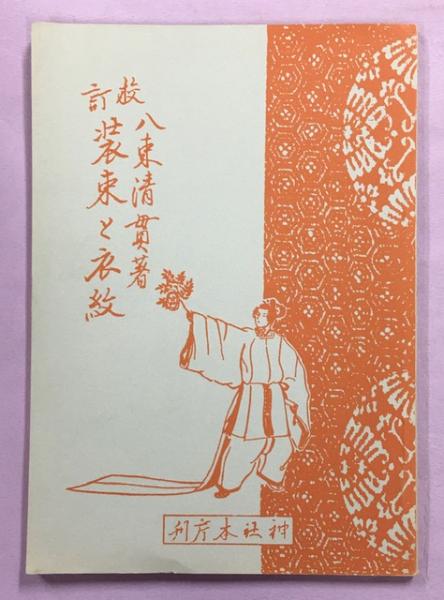 校訂
八束清貫著
装束と衣紋
神社本庁刊